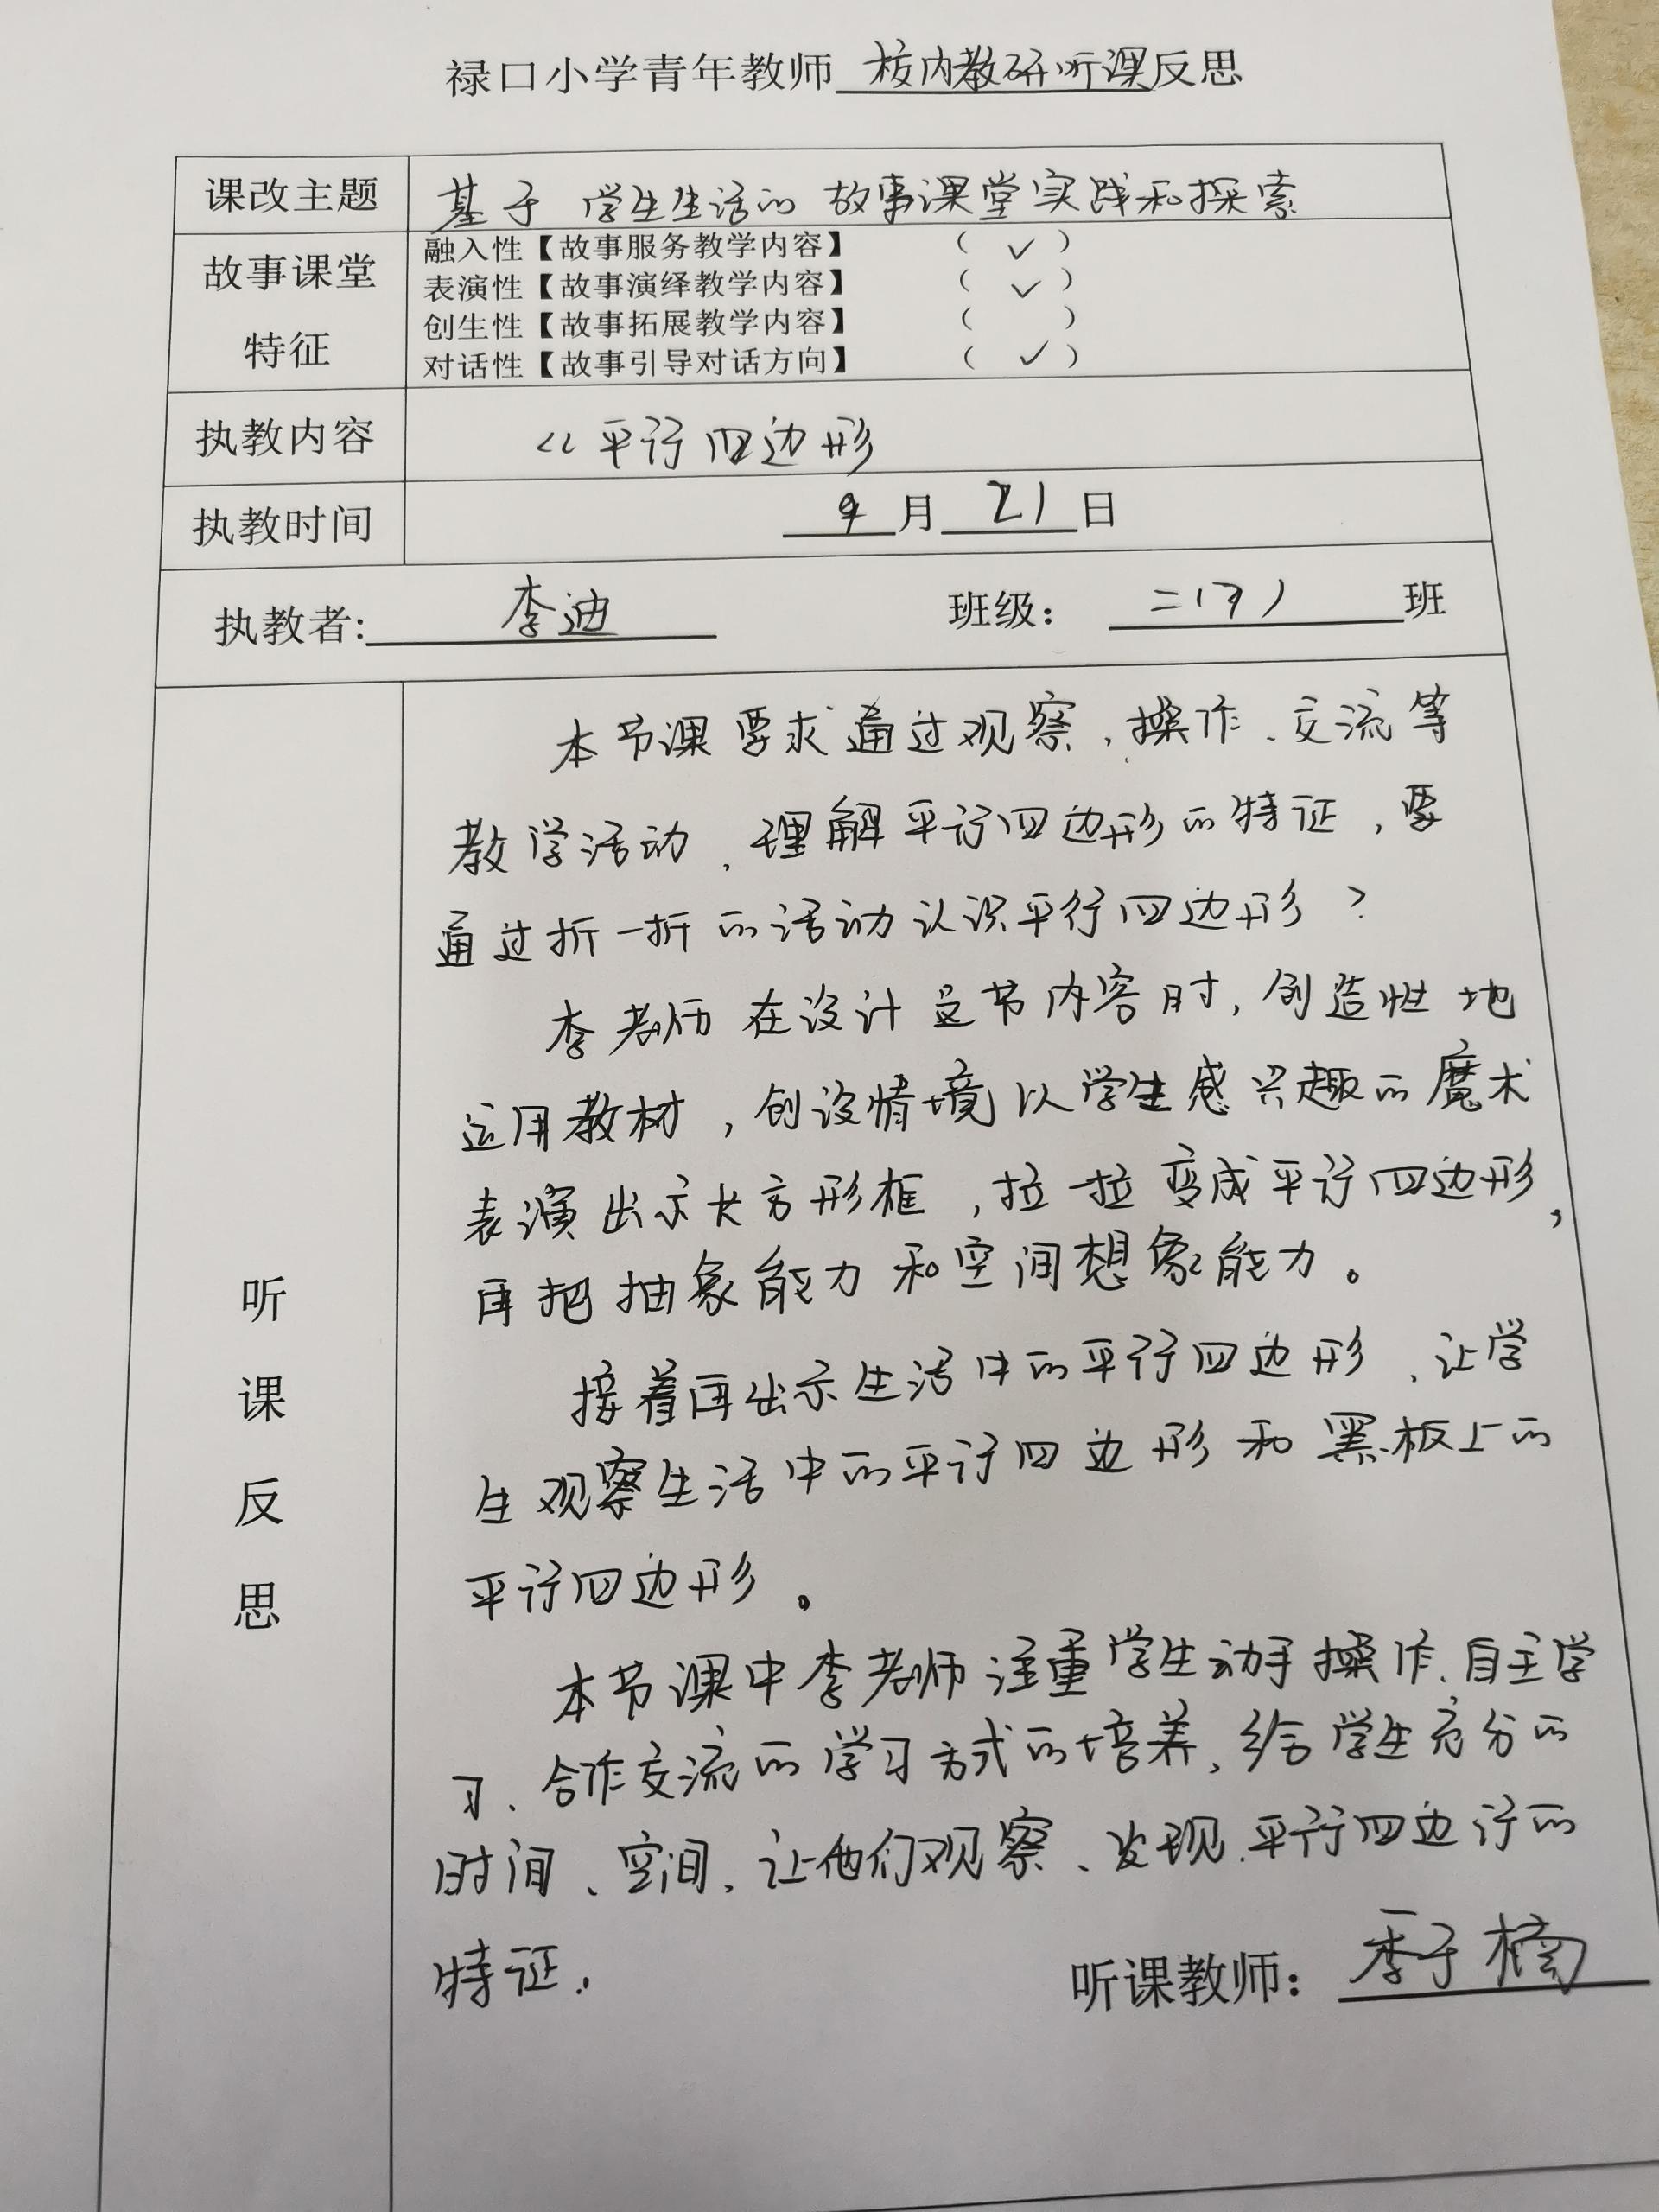 禄口小学青年教师校内教研听课反思
课改主题 基于学生生活的故事课堂实践和探索
故事课堂特征
融入性【故事服务教学内容】 （ ✓ ）
表演性【故事演绎教学内容】 （ ✓ ）
创生性【故事拓展教学内容】 （ ）
对话性【故事引导对话方向】 （ ✓ ）
执教内容 《平行四边形
执教时间 9月21日
执教者: 李迪 班级： 二（7）班
听课反思
本节课要求通过观察、操作、交流等
教学活动，理解平行四边形的特征，要
通过折一折的活动认识平行四边形？
李老师在设计这节内容时，创造性地
运用教材，创设情境以学生感兴趣的魔术
表演出示长方形框，拉一拉变成平行四边形，
再把抽象能力和空间想象能力。
接着再出示生活中的平行四边形，让学
生观察生活中的平行四边形和黑板上的
平行四边形。
本节课中李老师注重学生动手操作、自主学
习、合作交流的学习方式的培养，给学生充分的
时间、空间，让他们观察、发现平行四边行的
特征。
听课教师： 季子楠